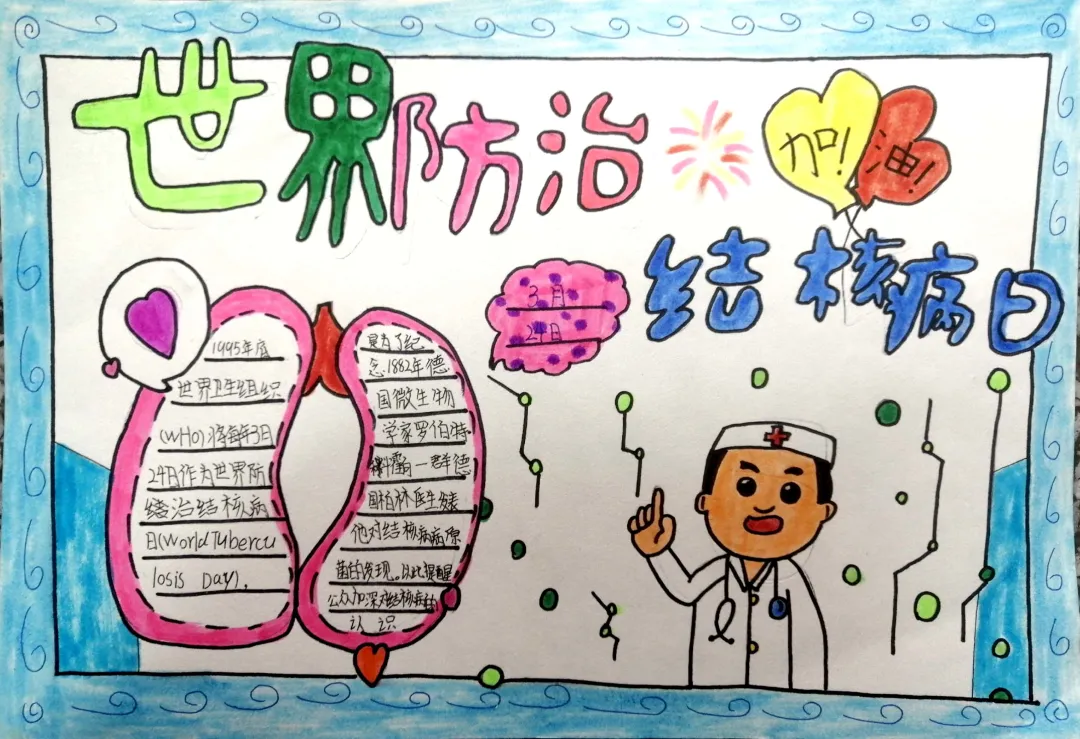 世界防治
加!
油!
结核病日
3月
24日
1995年底
世界卫生组织
(WHO)将每年3日
24日作为世界防
治结核病
日(World Tubercu
losis Day).
是为了纪
念1882年德
国微生物
学家罗伯特
霍一群德
国柏林医生发表
他对结核病病原
菌的发现。以此提醒
公众加深对结核病的
认识